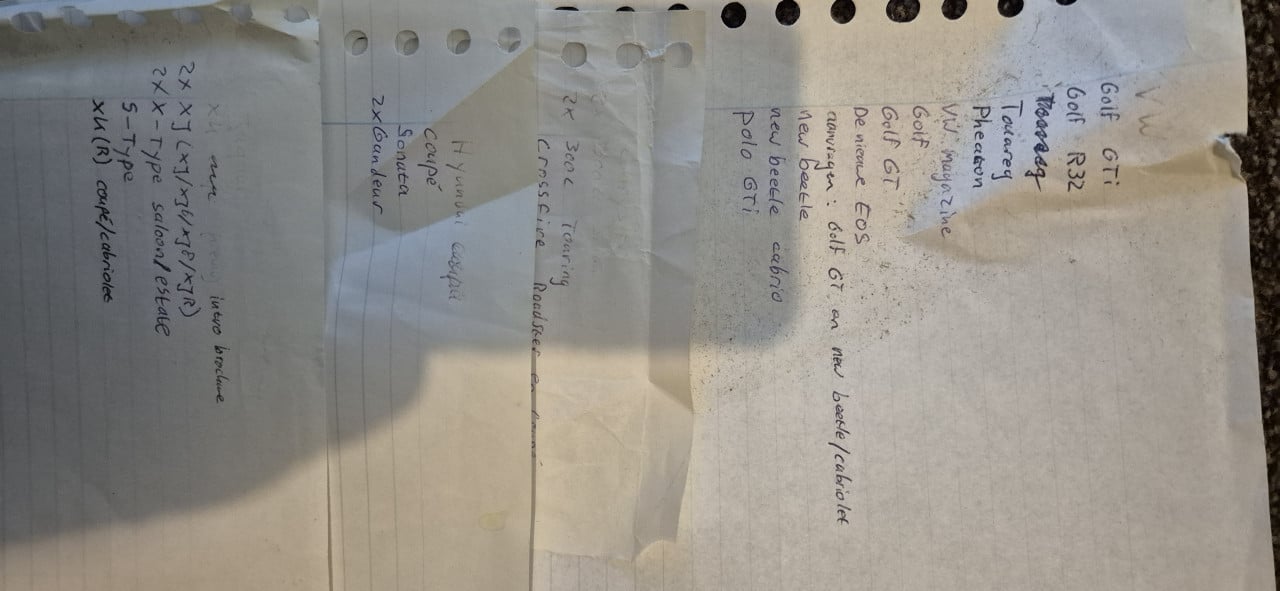 VW
Golf GTi
Golf R32
Touareg
Pheaton
VW magazine
Golf
Golf GT
De nieuwe EOS
aanvragen: Golf GT en new beetle/cabriolet
new beetle
new beetle cabrio
polo GTi
2x 300c Touring
Crossfire Roadster en
Hyundai
Coupé
Sonata
2x Grandeur
intro brochure
2x XJ (XJ/XJ6/XJ8/XJR)
2x X-Type saloon/estate
S-Type
XK(R) coupé/cabriolet